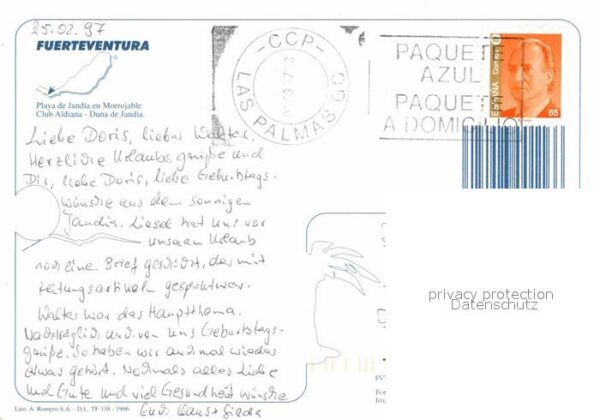 25.02.97
FUERTEVENTURA
Playa de Jandía en Morrojable
Club Aldiana - Duna de Jandía.
CCP
LAS PALMAS GC
PAQUETE
AZUL
PAQUETE
A DOMICILIO
ESPAÑA
Correos
65
Liebe Doris, lieber Walter,
Herzliche Urlaubsgrüße und
Dir, liebe Doris, liebe Geburtstags-
wünsche aus dem sonnigen
Jandia. Liesel hat uns vor
unserem Urlaub
noch eine Brief geschickt, der mit
Zeitungsartikeln gespickt war.
Walter war das Hauptthema.
Nachträglich auch von uns Geburtstags-
grüße. So haben wir auch mal wieder
etwas gehört. Nochmals alles Liebe
und Gute und viel Gesundheit wünsche
Euch Hans +
privacy protection
Datenschutz
Lito. A. Romero S.A. - D.L. TF 338 - 1996